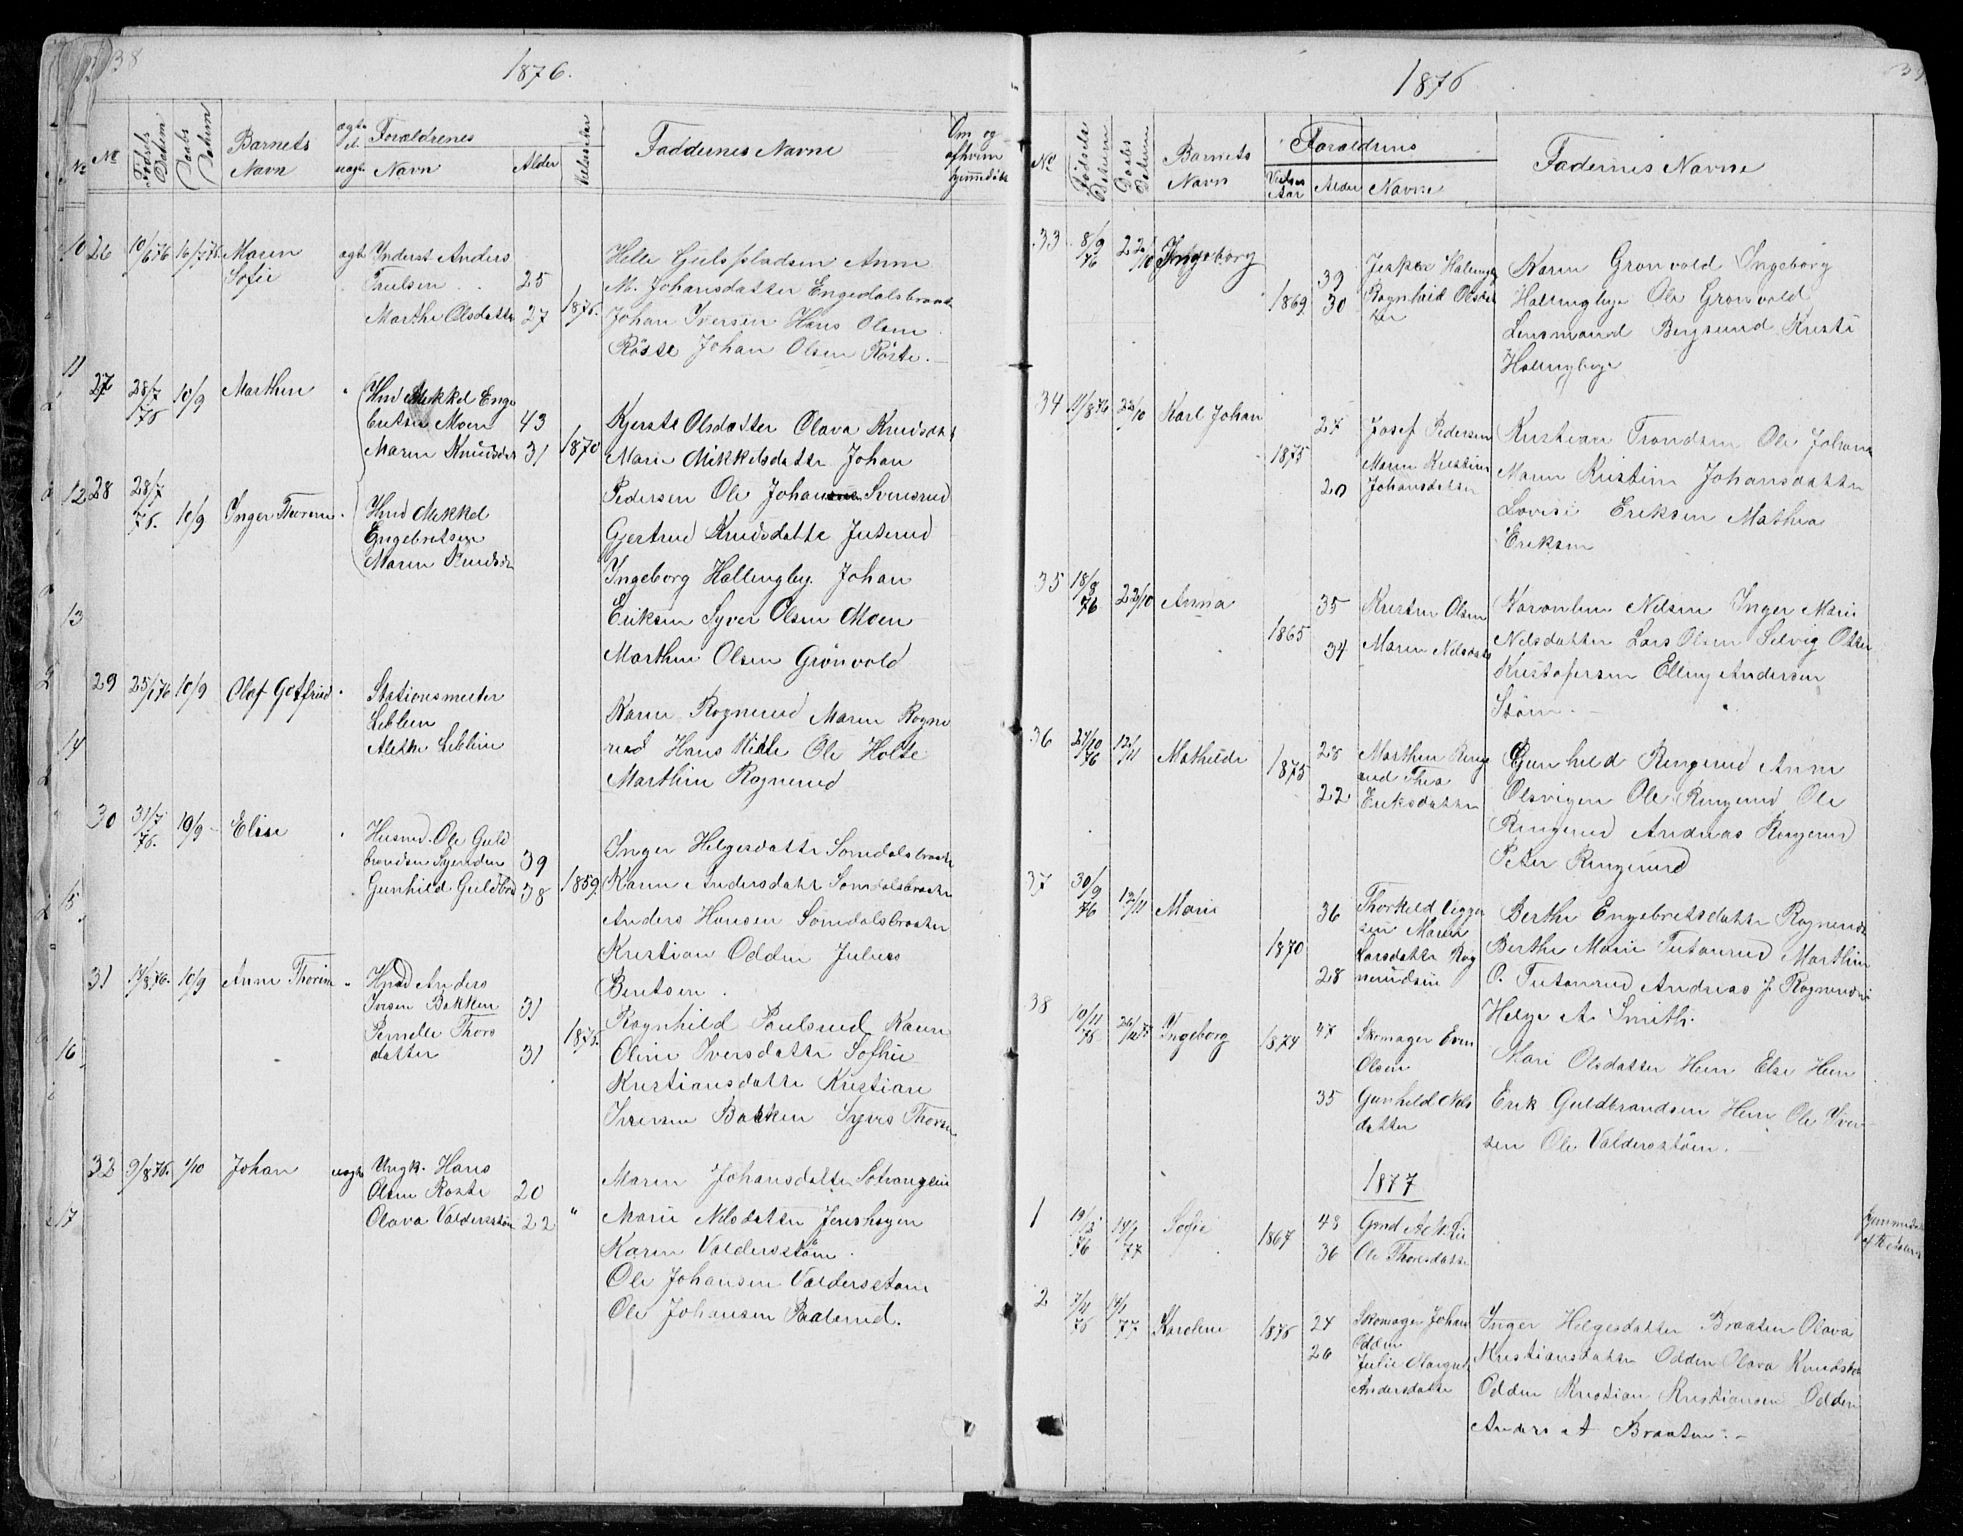 38
1876.
No
Fødsels Datum
Daabs Datum
Barnets Navn
ægte el. uægte
Forældrenes
Navn
Alder
Vielsesaar
Faddernes Navne
Om og af hvem hjemmedøbt
26 10/6 76 16/7 76 Maren Sofie ægt.
Inderst Anders
Paulsen 25
Marthe Olsdatter 27 1876.
Helle Anne
M. Johansdatter Engedalsbraat
Johan Iversen Hans Olsen
Røste Johan Olsen Røste.
27 28/7 76 10/9 Marthin
Hmd Mikkel Enge
britsen Moen 43
Maren Knudsdr 31 1870
Kjersti Olsdatter Olava Knudsdat
Marie Mikkelsdatter Johan
Pedersen Ole Johansen Svensrud
28 28/7 76. 10/9 Inger
Hmd Mikkel
Engebretsen
Maren Knudsda
Gjertrud Knudsdatter Juterud
Ingeborg Hallingby. Johan
Eriksen Syver Olsen Moen
Marthin Olsen Grønvold
29 25/6 76 10/9 Olaf Gotfried
Stationsmester
Leblein
Alethe Leblein
Karen Rognerud Maren Rogne
rud Hans Ole Holte
Marthin Rognerud
30 31/7 76. 10/9 Elise
Husmd. Ole Guld
brandsen 39
Gunhild Guldbra 38 1859.
Inger Helgesdatter Somdalsbraate
Karen Andersdatter Somdalsbraate
Anders Hansen Somdalsbraaten
Kristian Odden Julius
Berntsen.
31 17/8 76. 10/9 Anne Thorine
Hmd Anders
Iversen Bakken 31
Pernille Thors
datter 31 1875.
Ragnhild Paulsrud Karen
Oline Iversdatter Sofhie
Kristiansdatter Kristian
Iversen Bakken Syvers Thorsen
32 9/8 76. 1/10 Johan uægt
Ungk. Hans
Olsen Røste 20
Olava Valdersstøen 22 "
Maren Johansdatter
Marie Nilsdatter
Karen Valdersstøen.
Ole Johansen Valdersstøen
Ole Johansen Paalerud.
39
1876
No
Fødsels Datum
Daabs Datum
Barnets Navn
Vielses Aar
Alder
Forældrens
Navne
Fadernes Navne
33 8/9 76 22/10 Ingeborg
1869 39 30
Jesper Hallingby
Ragnhild Olsdat
ter
Karen Grønvold Ingeborg
Hallingbye Ole Grønvold
Lensmand Bergsund Kristi
Hallingbye
34 11/8 76 22/10 Karl Johan
1875 27 20
Josef Pedersen
Maren Kristine
Johansdatter
Kristian Trondsen Ole Johans
Maren Kristine Johansdatter
Lovise Eriksen Mathea
Eriksen
35 18/8 76 22/10 Anna
1865 35 34
Kristen Olsen
Maren Nilsdatt
Karoline Nilsen Inger Marie
Nilsdatter Lars Olsen Selvig Otter
Kristofersen Elling Andersen
Støen.
36 27/10 76 12/11 Mathilde
1875 28 22
Marthin Ring
rud Thea
Eriksdatter
Gunhild Ringerud Anne
Olsvigen Ole Ringerud Ole
Ringerud Andreas Ringerud
Peter Ringerud
37 30/9 76 12/11 Marie
1870 36 28
Thorkild Vigger
sen Maren
Larsdatter Rog
nerudseie
Berthe Engebretsdatter Rognerud
Berthe Marie Tutanrud Marthin
O. Tutanrud Andreas J. Rognerud
Helge A. Smith.
38 19/11 76 26/12 Ingeborg
1874 47 35
Skomager Even
Olsen
Gunhild Nils
datter
Mari Olsdatter Hem Else Hem
Erik Guldbrandsen Hem Ole Iver
sen Ole Valdersstøen.
1877
1 19/12 76 14/1 77 Sofie
1867 48 36
Gmd A. N. Lie
Ole Thoresdatter
2 7/11 76 14/1 77 Karoline
1876 24 26
Skomager Johan
Odden
Julie Margret
Andersdatter
Inger Helgesdatter Braaten Olava
Kristiansdatter Odden Olava Knudsda
Odden Kristian Kristiansen Odden
Anders A Braaten.